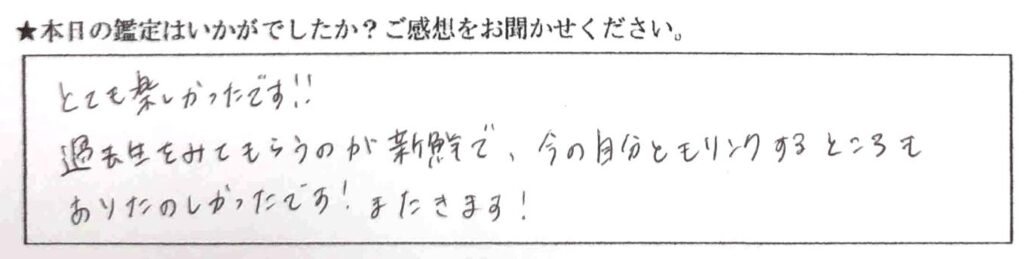 ★本日の鑑定はいかがでしたか？ご感想をお聞かせください。
とても楽しかったです!!
過去生をみてもらうのが新鮮で、今の自分ともリンクするところも
ありたのしかったです！またきます！